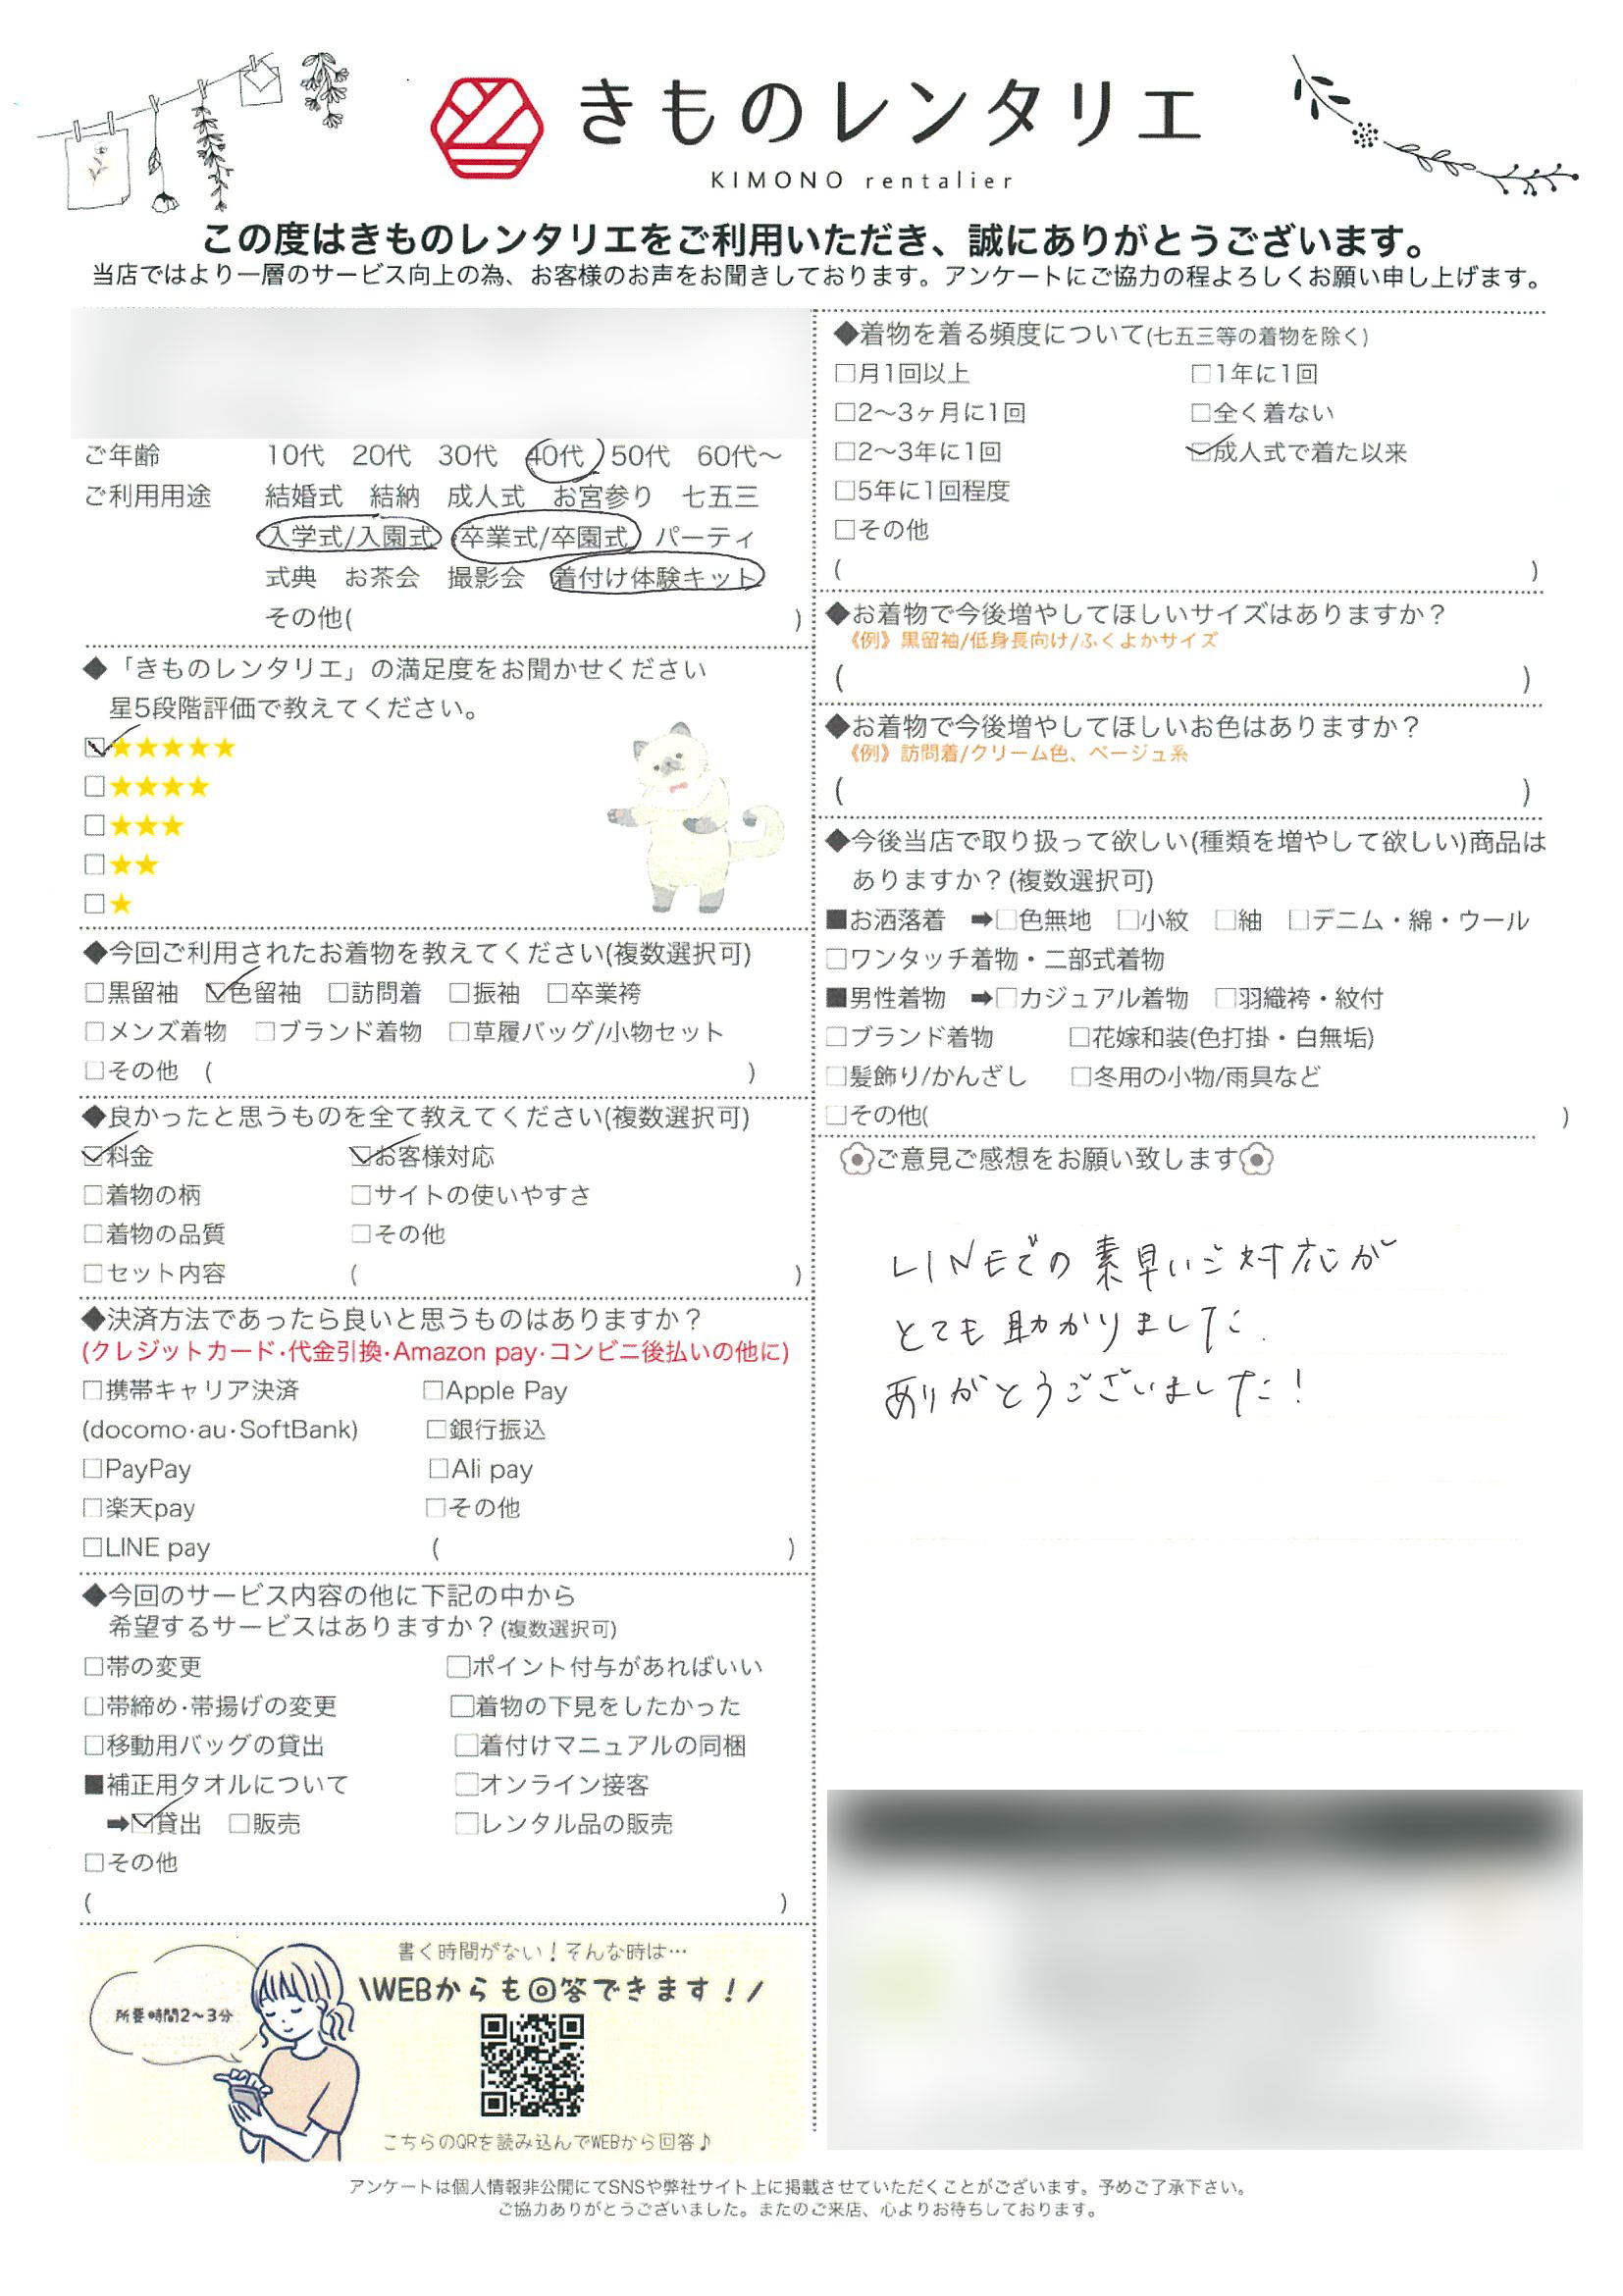 きものレンタリエ
KIMONO rentalier
この度はきものレンタリエをご利用いただき、誠にありがとうございます。
当店ではより一層のサービス向上の為、お客様のお声をお聞きしております。アンケートにご協力の程よろしくお願い申し上げます。
ご年齢 10代 20代 30代 40代 50代 60代～
ご利用用途 結婚式 結納 成人式 お宮参り 七五三
入学式/入園式 卒業式/卒園式 パーティ
式典 お茶会 撮影会 着付け体験キット
その他( )
◆「きものレンタリエ」の満足度をお聞かせください
星5段階評価で教えてください。
☑★★★★★
□★★★★
□★★★
□★★
□★
◆今回ご利用されたお着物を教えてください(複数選択可)
□黒留袖 ☑色留袖 □訪問着 □振袖 □卒業袴
□メンズ着物 □ブランド着物 □草履バッグ/小物セット
□その他 ( )
◆良かったと思うものを全て教えてください(複数選択可)
☑料金 ☑お客様対応
□着物の柄 □サイトの使いやすさ
□着物の品質 □その他
□セット内容 ( )
◆決済方法であったら良いと思うものはありますか？
(クレジットカード・代金引換・Amazon pay・コンビニ後払いの他に)
□携帯キャリア決済 □Apple Pay
(docomo・au・SoftBank) □銀行振込
□PayPay □Ali pay
□楽天pay □その他
□LINE pay ( )
◆今回のサービス内容の他に下記の中から
希望するサービスはありますか？(複数選択可)
□帯の変更 □ポイント付与があればいい
□帯締め・帯揚げの変更 □着物の下見をしたかった
□移動用バッグの貸出 □着付けマニュアルの同梱
■補正用タオルについて □オンライン接客
➡☑貸出 □販売 □レンタル品の販売
□その他
( )
書く時間がない！そんな時は…
\WEBからも回答できます！/
所要時間2～3分
こちらのQRを読み込んでWEBから回答♪
◆着物を着る頻度について(七五三等の着物を除く)
□月1回以上 □1年に1回
□2～3ヶ月に1回 □全く着ない
□2～3年に1回 ☑成人式で着た以来
□5年に1回程度
□その他
( )
◆お着物で今後増やしてほしいサイズはありますか？
《例》黒留袖/低身長向け/ふくよかサイズ
( )
◆お着物で今後増やしてほしいお色はありますか？
《例》訪問着/クリーム色、ベージュ系
( )
◆今後当店で取り扱って欲しい(種類を増やして欲しい)商品は
ありますか？(複数選択可)
■お洒落着 ➡□色無地 □小紋 □紬 □デニム・綿・ウール
□ワンタッチ着物・二部式着物
■男性着物 ➡□カジュアル着物 □羽織袴・紋付
□ブランド着物 □花嫁和装(色打掛・白無垢)
□髪飾り/かんざし □冬用の小物/雨具など
□その他( )
ご意見ご感想をお願い致します
LINEでの素早いご対応が
とても助かりました.
ありがとうございました！
アンケートは個人情報非公開にてSNSや弊社サイト上に掲載させていただくことがございます。予めご了承下さい。
ご協力ありがとうございました。またのご来店、心よりお待ちしております。